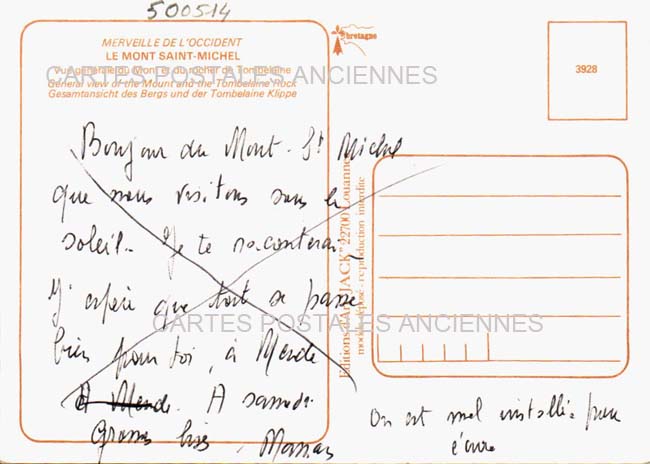 500514
MERVEILLE DE L'OCCIDENT
LE MONT SAINT-MICHEL
Vue générale du Mont et du rocher de Tombelaine
General view of the Mount and the Tombelaine Rock
Gesamtansicht des Bergs und der Tombelaine Klippe
CARTES POSTALES ANCIENNES
bretagne
3928
Bonjour du Mont-St Michel
que nous visitons sous le
soleil.. Je te raconterai.
J'espère que tout se passe
bien pour toi, à Mende
A Mende. A samedi
Grosses bises. Maman
Editions d'Art "JACK" 22700 Louannec
modèle déposé - reproduction interdite
CARTES POSTALES ANCIENNES
On est mal installée pour
écrire